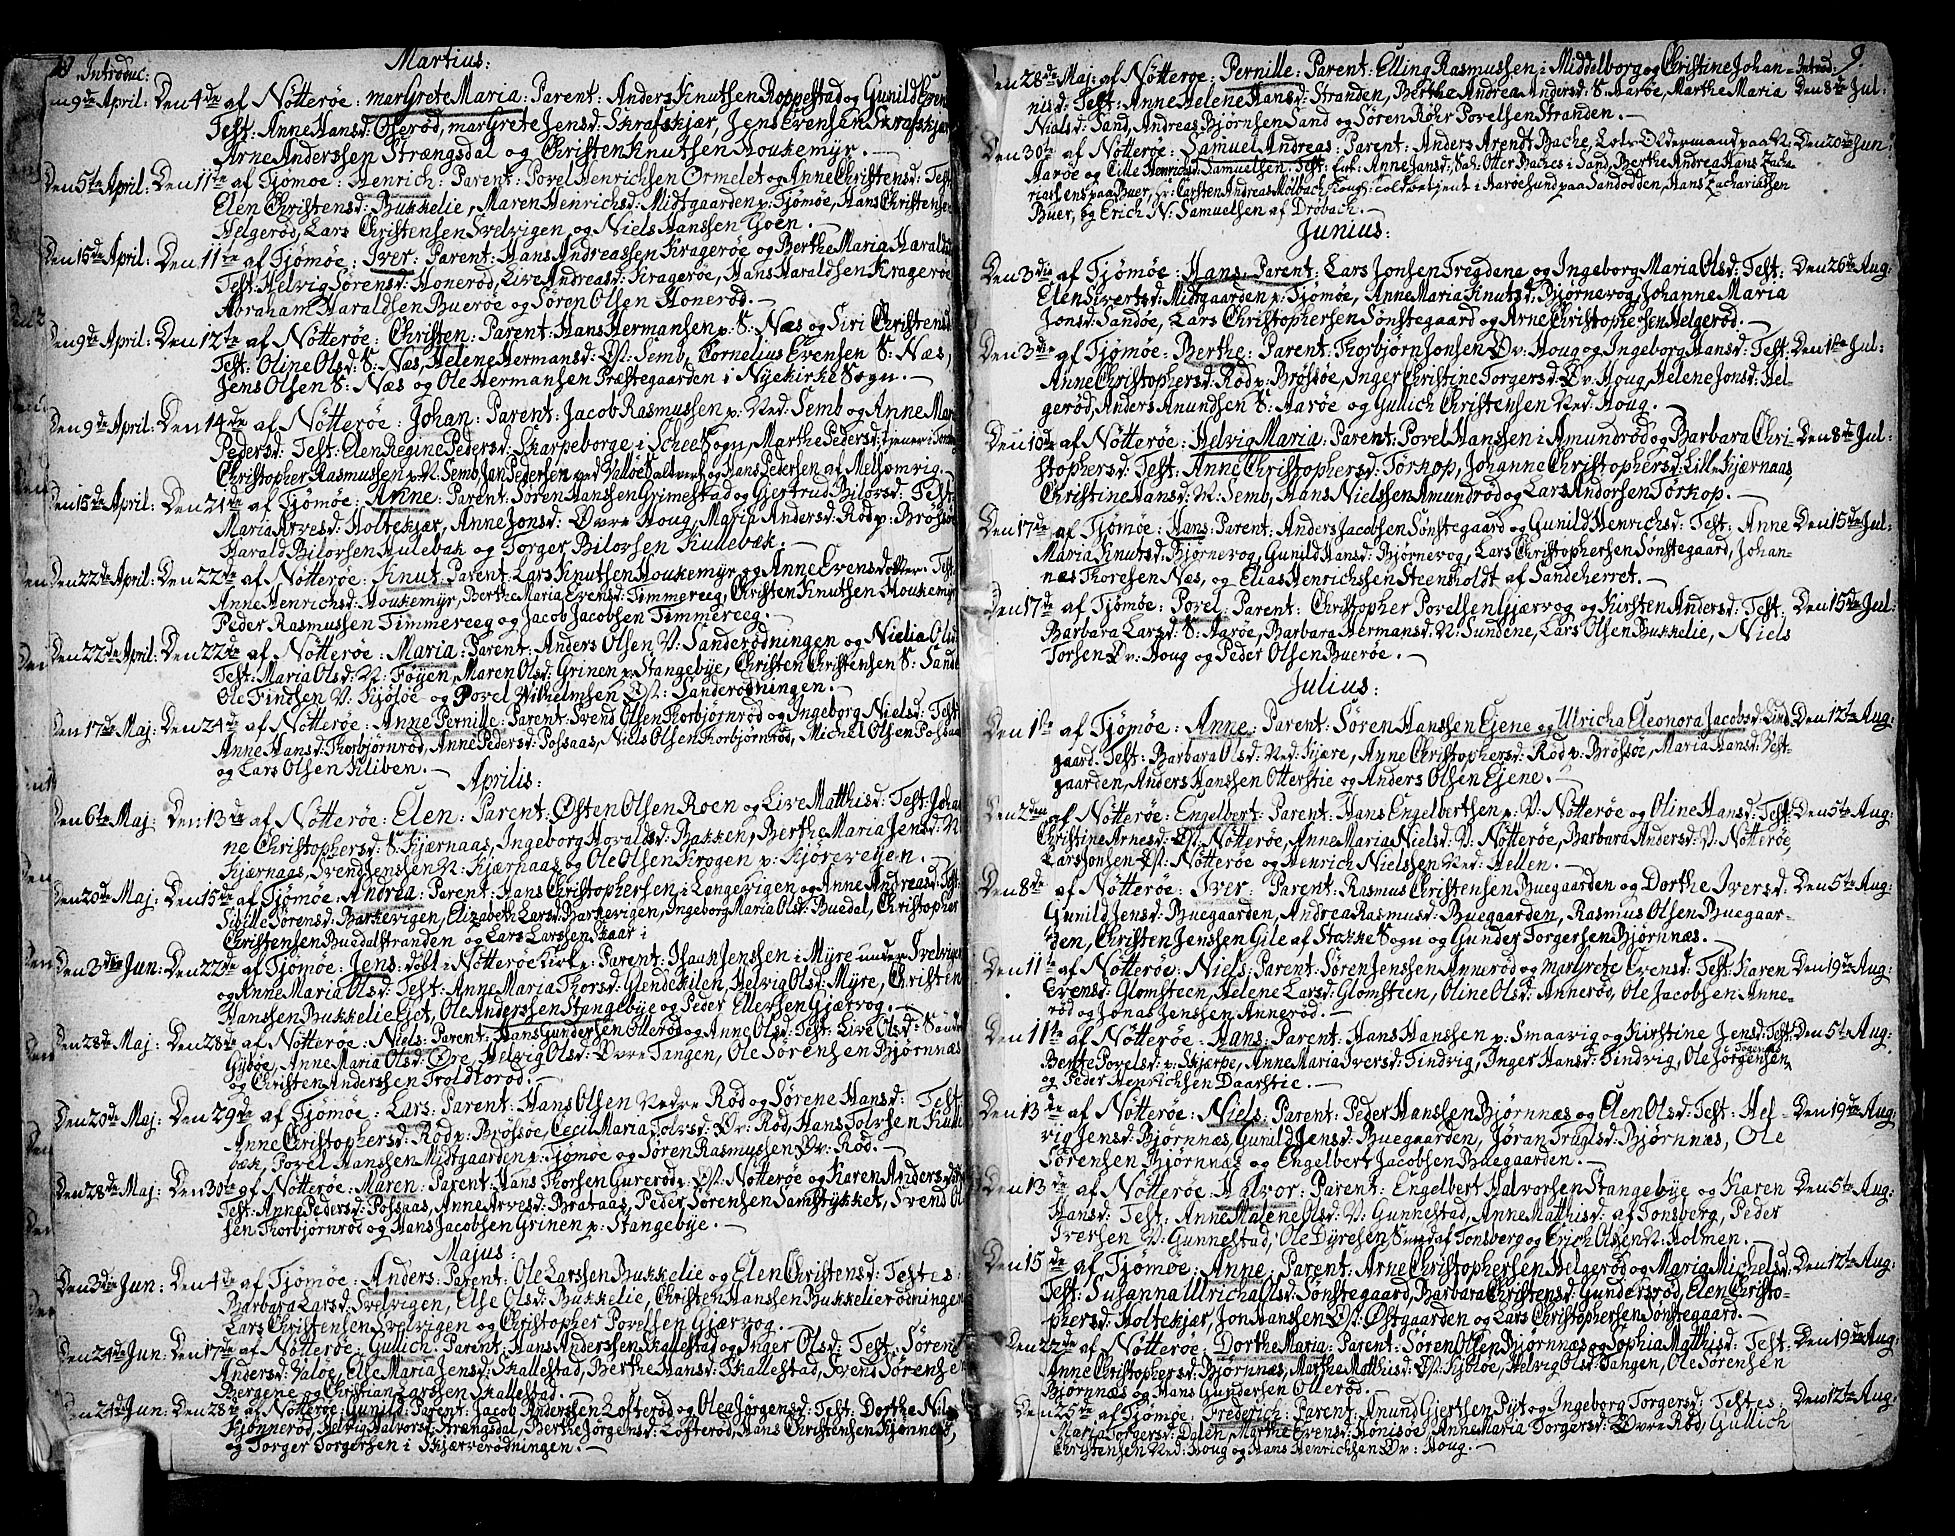 Introduc: Martius:
9de April: Den 4de af Nötterøe: Margrete Maria: Parent: Anders Knutsen Roppestad og Gunild Evens
Test: Anne Hansd: Oserød, Margrete Jensd: Skrafskjær, Jens Evensen Skrafskjær
Arne Anderssen Strængsdal og Christen Knutsen Houkemyr.
Den 5te April: Den 11te af Tjømøe: Henrich: Parent: Povel Henrichsen Ormelet og Anne Christensd: Test
Elen Christensd: Bukkelie, Maren Henrichsd: Midtgaarden p: Tjømøe, Hans Christensen
Helgerød, Lars Christensen Svelvigen og Niels Hanssen Goen.
Den 15de April: Den 11te af Tjømøe: Iver: Parent: Hans Andreassen Kragerøe og Berthe Maria Haralds
Test: Helvig Sørensd: Honerød, Live Andreasd: Kragerøe, Hans Haraldsen Kragerøe
Abraham Haraldsen Buerøe og Søren Olsen Honerød.
Den 9de April: Den 12te af Nötterøe: Christen: Parent: Hans Hermansen p: S: Næs og Siri Christensd
Test: Oline Olsd: S: Næs, Helene Hermansd: Øst: Semb, Cornelius Evensen S: Næs,
Jens Olsen S: Næs og Ole Hermansen Præstegaarden i Nyekirke Sogn.
Den 9de April: Den 14de af Nötterøe: Johan: Parent: Jacob Rasmussen p: Ned: Semb og Anne Mar
Pedersd: Test: Elen Regine Pedersd: Skarpeborge i Schee Sogn, Marthe Pedersd: tjener i
Christopher Rasmussen p: N: Semb, Jan Pedersen ved Valløe Saltverk og Hans Pedersen af Melsomvig.
Den 15de April: Den 21de af Tjømøe: Anne: Parent: Søren Hanssen Grimestad og Gjertrud Bilorsd: Test:
Maria Arvesd: Holtekjær, Anne Jonsd: Øvre Houg, Maria Andersd: Rød p: Brøtsøe
Harald Bilorsen Hulebak og Torger Bilorsen Kullebæk.
Den 22de April: Den 22de af Nötterøe: Knut: Parent: Lars Knutsen Houkemyr og Anne Evensdotter: Test
Anne Henrichsd: Houkemyr, Berthe Maria Evensd: Timmereeg, Christen Knutsen Houkemyr
Peder Rasmussen Timmereeg og Jacob Jacobsen Timmereeg.
Den 22de April: Den 22de af Nötterøe: Maria: Parent: Anders Olsen V: Sanderødningen og Nielia Olsd
Test: Maria Olsd: N: Føyen, Maren Olsd: Grinen p: Stangebye, Christen Christensen S: Sande
Ole Findsen V: Kjøløe og Povel Wilhelmsen Øst: Sanderødningen.
Den 17de Maj: Den 24de af Nötterøe: Anne Pernille: Parent: Svend Olsen Thorbjørnrød og Ingeborg Nielsd: Test
Anne Hansd: Thorbjørnrød, Anne Pedersd: Possaas, Niels Olsen Thorbjørnrød, Michel Olsen Possaas
og Lars Olsen Kiliben.
Aprilis:
Den 6te Maj: Den 13de af Nötterøe: Elen: Parent: Østen Olsen Roen og Live Matthisd: Test: Johan
ne Christophersd: S: Kjærnaas, Ingeborg Hovalsd: Bakken, Berthe Maria Jensd: N
Kjærnaas, Svend Jenssen N: Kjærnaas og Ole Olsen Krogen p: Kjøreveyen.
Den 20de Maj: Den 15de af Tjømøe: Andrea: Parent: Hans Christophersen i Langevigen og Anne Andreasd: Test
Sibille Sørensd: Barkevigen, Elizabeth Larsd: Barkevigen, Ingeborg Maria Olsd: Buedal, Christopher
Christensen Buedalstranden og Lars Larssen Skaar i
Den 3die Jun: Den 22de af Tjømøe: Jens: döbt i Nötterøe Kirke: Parent: Isaak Jenssen i Myre under Svelvigen
og Anne Maria Olsd: Test: Anne Maria Thorsd: Glendekilen, Helvig Olsd: Myre, Christen
Hanssen Bukkelie Eget, Ole Anderssen Stangebye og Peder Ellevsen Gjærvog.
Den 28de Maj: Den 28de af Nötterøe: Niels: Parent: Hans Gundersen Ollerød og Anne Olsd: Test: Live Olsd: Søndre
Gipøe, Anne Maria Olsd: Øre, Helvig Olsd: Øvre Tangen, Ole Sørensen Bjørnnæs
og Christen Anderssen Troldtorød.
Den 20de Maj: Den 29de af Tjømøe: Lars: Parent: Hans Olsen Nedre Rød og Sørene Hansd: Test
Anne Christophersd: Rød p: Brøtsøe, Cecil Maria Tolvsd: Øv: Rød, Hans Tolvsen Kulle
bæk, Povel Hanssen Midtgaarden p: Tjømøe og Søren Rasmussen Øv: Rød.
Den 28de Maj: Den 30te af Nötterøe: Maren: Parent: Hans Thorsen Gurerød: Øst: Nötterøe og Karen Andersd
Test: Anne Pedersd: Possaas, Anne Arvesd: Brataas, Peder Sørensen Samstykket, Svend Ol
sen Thorbjørnrød og Hans Jacobsen Grinen p: Stangebye.
Majus:
Den 3die Jun: Den 4de af Tjømøe: Anders: Parent: Ole Larssen Bukkelie og Elen Christensd: Testes:
Barbara Larsd: Svelvigen, Else Olsd: Bukkelie, Christen Hanssen Bukkelierødningen
Lars Christensen Svelvigen og Christopher Povelsen Gjærvog.
Den 24de Jun: Den 17de af Nötterøe: Gullich: Parent: Hans Anderssen Skallestad og Inger Olsd: Test: Søren
Andersd: Valøe, Else Maria Jensd: Skallestad, Berthe Hansd: Skallestad, Svend Sørensen
Bergene og Christian Larssen Skallestad.
Den 24de Jun: Den 28de af Nötterøe: Gunild: Parent: Jacob Anderssen Lofterød og Olea Jørgensd: Test: Dorthe Nils
Kjønnerød, Helvig Halvorsd: Strængsdal, Berthe Jørgensd: Lofterød, Hans Christensen Kjønnerød,
og Torger Torgersen i Skjærverødningen.
9.
Den 28de Maj: af Nötterøe: Pernille: Parent: Elling Rasmussen i Middelborg og Christine Johan- Introd:
nisd: Test: Anne Helene Hansd: Stranden, Berthe Andrea Andersd: S: Aarøe, Marthe Maria Den 8de Jul:
Nielsd: Sand, Andreas Bjørnsen Sand og Søren Röhr Povelsen Stranden.
Den 30te af Nötterøe: Samuel Andreas: Parent: Anders Arendt Bache, Lots Oldermand paa N: Den 20de Jun:
Aarøe og Cille Henrichsd: Samuelsen, Test: Anne Jansd: Sal: Otter Baches i Sand, Berthe Andrea Hans Zacha
riassens paa Buer, Hr: Carsten Andreas Molbach, Kongl: Toldbetjent i Aarøesund paa Sandodden, Hans Zachariassen
Buer, og Erich N: Samuelsen af Drøbach.
Junius:
Den 3die af Tjømøe: Hans: Parent: Lars Jonsen Tregdena og Ingeborg Maria Olsd: Test: Den 26de Aug:
Elen Sivertsd: Midtgaarden p: Tjømøe, Anne Maria Knutsd: Bjørnevog, Johanne Maria
Jonsd: Sandøe, Lars Christophersen Sønstegaard og Arne Christophersen Helgerød.
Den 3die af Tjømøe: Berthe: Parent: Thorbjørn Jonsen Øv: Houg og Ingeborg Hansd: Test: Den 1ste Jul:
Anne Christophersd: Rød p: Brøtsøe, Inger Christine Torgersd: Øv: Houg, Helene Jonsd: Hel-
gerød, Anders Anundsen S: Aarøe og Gullich Christensen Ned: Houg.
Den 10de af Nötterøe: Helvig Maria: Parent: Povel Hanssen i Amundrød og Barbara Chri- Den 8de Jul:
stophersd: Test: Anne Christophersd: Torkop, Johanne Christophersd: Lille Kjærnaas,
Christine Hansd: N: Semb, Hans Nielssen Amundrød og Lars Andorsen Torkop.
Den 17de af Tjømøe: Hans: Parent: Anders Jacobsen Sønstegaard og Gunild Henrichsd: Test: Anne Den 15de Jul:
Maria Knutsd: Bjørnevog, Gunild Hansd: Bjørnevog, Lars Christophersen Sønstegaard, Johan-
nes Thoresen Næs, og Elias Henrichssen Steensholdt af Sandeherret.
Den 17de af Tjømøe: Povel: Parent: Christopher Povelsen Gjærvog og Kirsten Andersd: Test: Den 15de Jul:
Barbara Larsd: S: Aarøe, Barbara Hermansd: N: Sundene, Lars Olsen Bukkelie, Niels
Torsen Øv: Houg og Peder Olsen Buerøe.
Julius:
Den 1ste af Tjømøe: Anne: Parent: Søren Hanssen Ejene og Ulricha Eleonora Jacobsd: Lind- Den 12te Aug:
gaard. Test: Barbara Olsd: Ned: Kjære, Anne Christophersd: Rød p: Brøtsøe, Maria Hansd: Vest-
gaarden, Anders Hanssen Otterstie og Anders Olsen Ejene.
Den 2den af Nötterøe: Engelbert: Parent: Hans Engelbertsen p: V: Nötterøe og Oline Hansd: Test: Den 5te Aug:
Christine Arnesd: Øst: Nötterøe, Anne Maria Nielsd: V: Nötterøe, Barbara Andersd: V: Nötterøe,
Lars Jonsen Øst: Nötterøe og Henrich Nielssen Ned: Hellen.
Den 8de af Nötterøe: Iver: Parent: Rasmus Christensen Buegaarden og Dorthe Iversd: Den 5te Aug:
Gunild Jensd: Buegaarden, Andrea Rasmusd: Buegaarden, Rasmus Olsen Buegaar-
den, Christen Jenssen Gile af Stokke Sogn og Gunder Torgersen Bjørnnæs.
Den 11te af Nötterøe: Niels: Parent: Søren Jenssen Annerød og Margrete Evensd: Test: Karen Den 19de Aug:
Evensd: Glomsteen, Helene Larsd: Glomsteen, Oline Olsd: Annerød, Ole Jacobsen Anne-
rød og Jonas Jenssen Annerød.
Den 11te af Nötterøe: Hans: Parent: Hans Hanssen p: Smaavig og Kirstine Jensd: Test: Den 5te Aug:
Berthe Povelsd: p: Skjærpe, Anne Maria Iversd: Tindvig, Inger Hansd: Tindvig, Ole Jørgensen
og Peder Henrichsen Daarstie.
Den 13de af Nötterøe: Niels: Parent: Peder Hanssen Bjørnnæs og Elen Olsd: Test: Hel- Den 19de Aug:
vig Jensd: Bjørnnæs, Gunild Jensd: Buegaarden, Jøran Trugelsd: Bjørnnæs, Ole
Sørensen Bjørnnæs og Engelbert Jacobsen Buegaarden.
Den 13de af Nötterøe: Halvor: Parent: Engelbert Halvorsen Stangebye og Karen Den 5te Aug:
Hansd: Test: Anne Malene Olsd: V: Gunnestad, Anne Matthisd: af Tonsberg, Peder
Iversen V: Gunnestad, Ole Dyresen Sund af Tonsberg og Erich Olsen N: Holmen.
Den 15de af Tjømøe: Anne: Parent: Arne Christophersen Helgerød og Maria Michelsd: Den 12te Aug:
Test: Susanna Ulricha Olsd: Sønstegaard, Barbara Christensd: Gundersrød, Elen Christo-
phersd: Holtekjær, Jon Hanssen Øst: Østgaarden og Lars Christophersen Sønstegaard.
Den 22de af Nötterøe: Dorthe Maria: Parent: Søren Olsen Bjørnnæs og Sophia Matthisd: Test: Den 19de Aug:
Anne Christophersd: Bjørnnæs, Marthe Matthisd: Øst: Kjøløe, Helvig Olsd: Tangen, Ole Sørensen
Bjørnnæs og Hans Gundersen Ollerød.
Den 25de af Tjømøe: Frederich: Parent: Anund Gjertsen Pijt og Ingeborg Torgersd: Testes: Den 12te Aug:
Maria Torgersd: Dalen, Marthe Evensd: Honisøe, Anne Maria Torgersd: Øvre Rød, Gullich
Christensen Ned: Houg og Hans Henrichsen Øv: Houg.